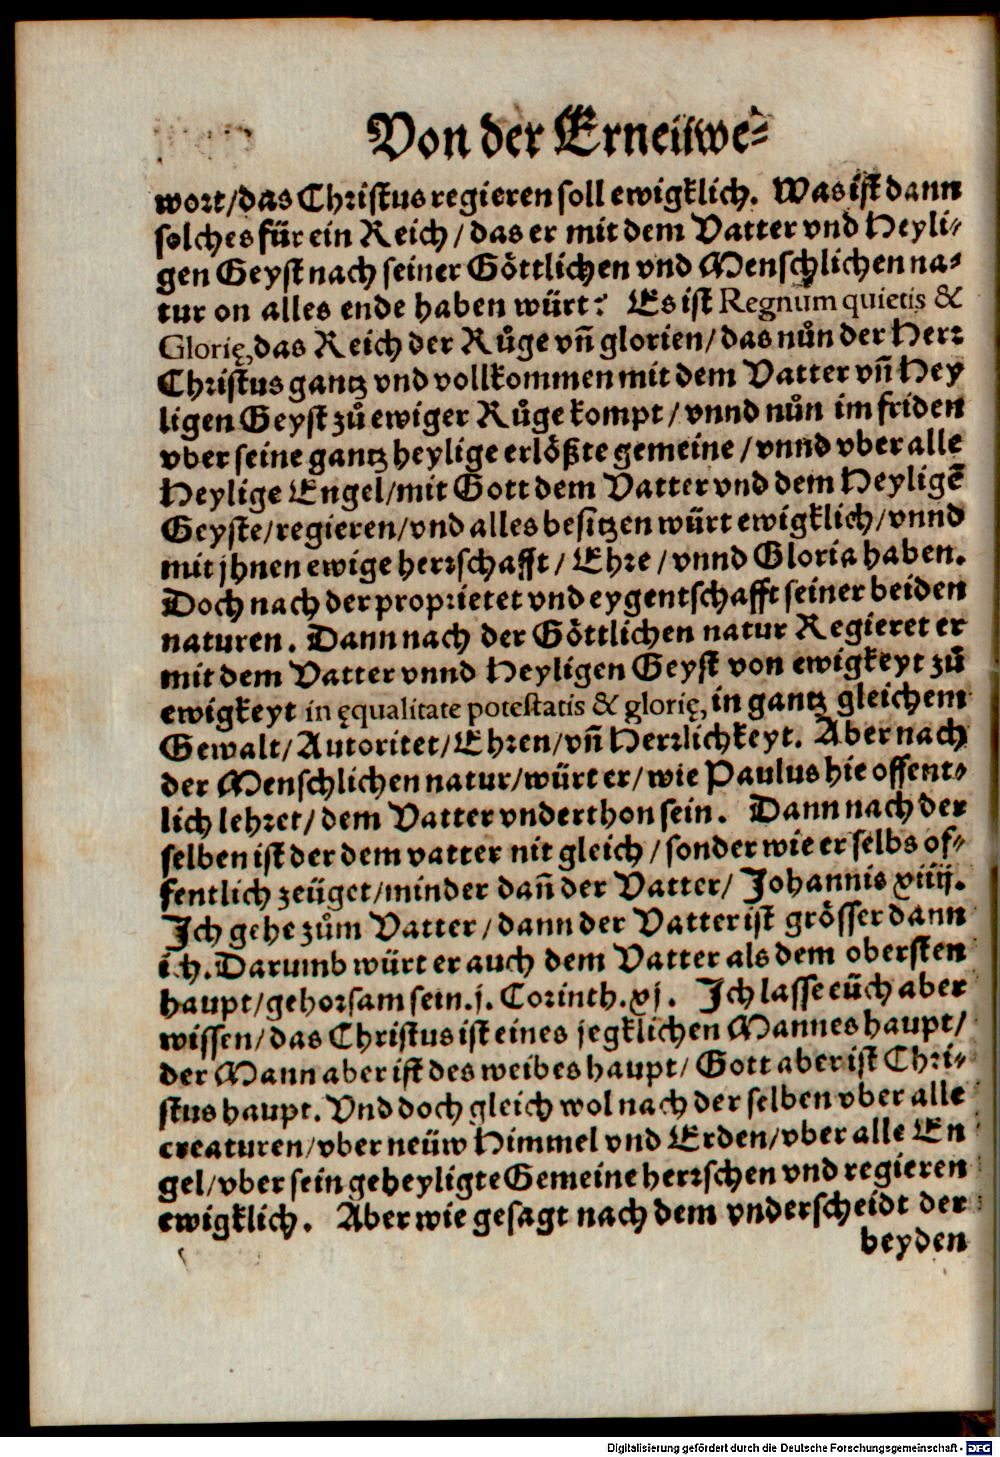 Von der Erneüwe-
wort/das Christus regieren soll ewigklich. Was ist dann
solches für ein Reich/das er mit dem Vatter vnd Heyli-
gen Geyst nach seiner Göttlichen vnd Menschlichen na-
tur on alles ende haben würt? Es ist Regnum quietis &
Glorię, das Reich der Růge vñ glorien/das nůn der Herr
Christus gantz vnd vollkommen mit dem Vatter vñ Hey
ligen Geyst zů ewiger Růge kompt/vnnd nůn im friden
vber seine gantz heylige erlößte gemeine/vnnd vber alle
Heylige Engel/mit Gott dem Vatter vnd dem Heyligē
Geyste/regieren/vnd alles besitzen würt ewigklich/vnnd
mit jhnen ewige herrschafft/Ehre/vnnd Gloria haben.
Doch nach der proprietet vnd eygentschafft seiner beiden
naturen. Dann nach der Göttlichen natur Regieret er
mit dem Vatter vnnd Heyligen Geyst von ewigkeyt zů
ewigkeyt in ęqualitate potestatis & glorię, in gantz gleichem
Gewalt/Autoritet/Ehren/vñ Herrlichkeyt. Aber nach
der Menschlichen natur/würt er/wie Paulus hie offent-
lich lehret/dem Vatter vnderthon sein. Dann nach der
selben ist der dem vatter nit gleich/sonder wie er selbs of-
fentlich zeüget/minder dañ der Vatter/Johannis xiiij.
Ich gehe zům Vatter/dann der Vatter ist grösser dann
ich. Darumb würt er auch dem Vatter als dem obersten
haupt/gehorsam sein. j. Corinth. xj. Ich lasse eüch aber
wissen/das Christus ist eines jegklichen Mannes haupt/
der Mann aber ist des weibes haupt/Gott aber ist Chri-
stus haupt. Vnd doch gleich wol nach der selben vber alle
creaturen/vber neüw Himmel vnd Erden/vber alle En
gel/vber sein geheyligte Gemeine herrschen vnd regieren
ewigklich. Aber wie gesagt nach dem vnderscheidt der
beyden
Digitalisierung gefördert durch die Deutsche Forschungsgemeinschaft - DFG